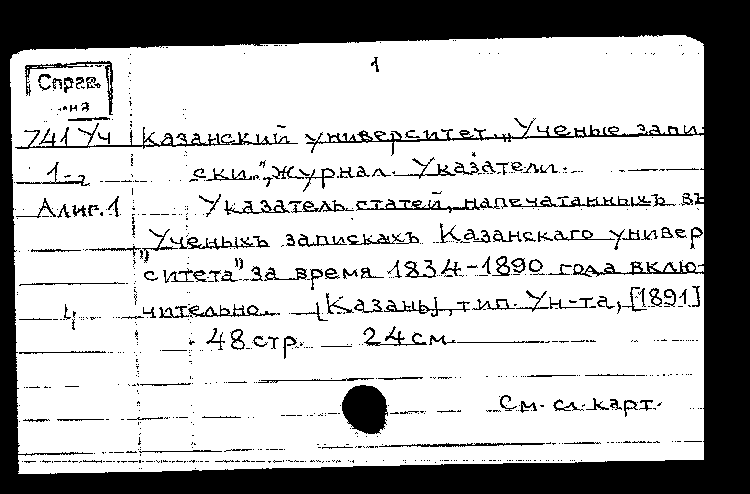 1
Справ.
741 Уч Казанский университет. „Ученые запи-
1-2 ски.", журнал. Указатели.
Алиг. 1 Указатель статей, напечатанныхъ въ
"Ученыхъ запискахъ Казанскаго универ
ситета" за время 1834-1890 года вклю-
4 чительно. [Казань], тип. Ун-та, [1891]
48 стр. 24 см.
См. сл. карт.